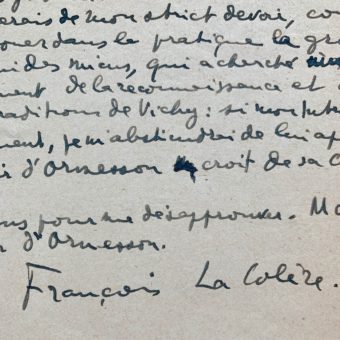 erais de mon strict devoir, co
oner dans la pratique la gr
ni des miens, qui a cherché
ment de la reconnaissance et
raditions de Vichy : si mon
ment, je m'abstiendrai de lui ap
ir d'Ormesson croit de sa c
ons pour me désapprouver. Ma
n d'Ormesson.
François La Colère.